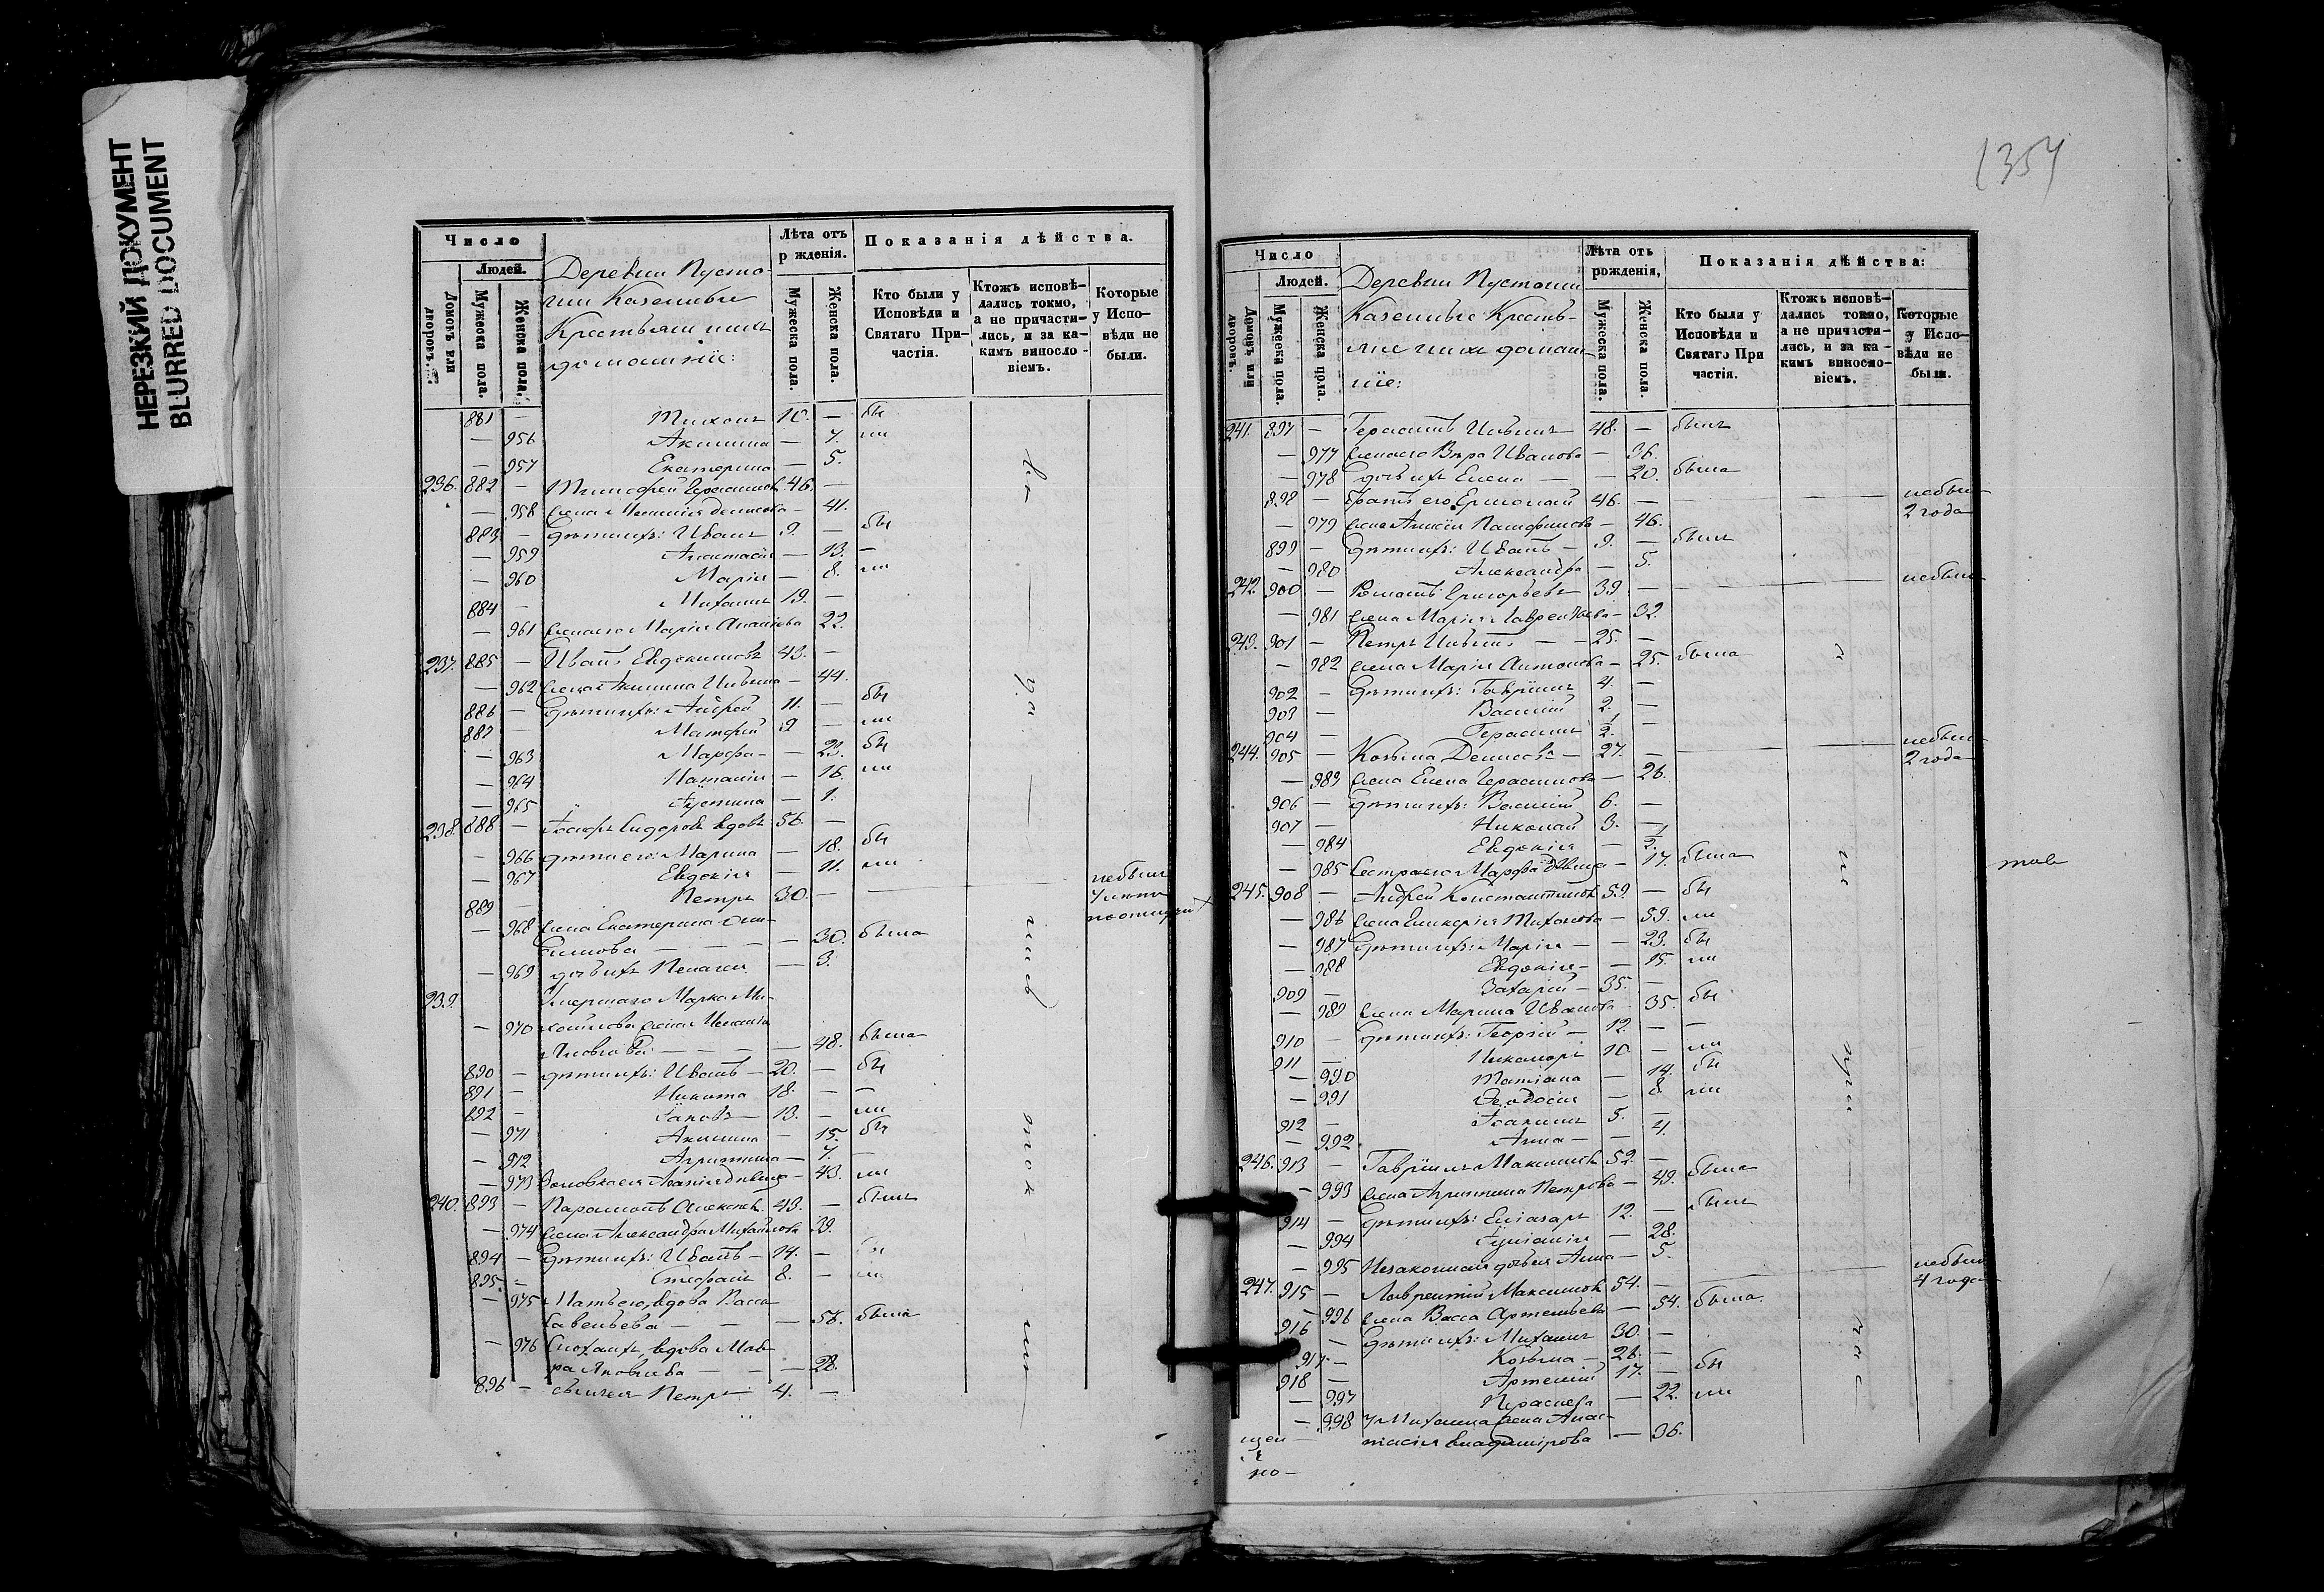 НЕРЕЗКИЙ ДОКУМЕНТ
BLURRED DOCUMENT
Число
Людей.
Домовъ или дворовъ.
Мужеска пола.
Женска пола.
Деревни Пусто-
Крестьяне
Лѣта отъ
р жденія.
Мужеска пола.
Женска пола.
Показанія дѣйства.
Кто были у Исповѣди и Святаго При-частія.
Ктожъ исповѣ-дались токмо, а не причасти-лись, и за ка-кимъ винословіемъ.
Которые у Испо-вѣди не были.
881 — Тихонъ 10. — бы
— 956 Акилина — 7. ли
— 957 Екатерина — 5.
236. 882 — Тимофей Герасимовъ 46. —
— 958 Жена Денисова — 41.
883 — Дѣти ихъ: Иванъ 9. — бы
— 959 Анастасія — 13. —
— 960 Марія — 8. ли
884 — Михаилъ 19. —
— 961 Жена его Марія 22.
237. 885 — Иванъ Евдокимовъ 43. —
— 962 Жена Акилина — 44.
886 — Дѣти ихъ: Андрей 11. — бы
887 — Матфей 9 — ли
— 963 Марфа — 23. бы
— 964 Наталія — 16. ли
— 965 Іустина — 1.
238. 888 — Іосифъ Сидоровъ вдовъ 56. —
— 966 Дѣти его: Марина — 18. бы
— 967 Евдокія — 11. ли
889 — Петръ 30. — небылъ
— 968 Жена Екатерина
— 30. была
— 969 дочь ихъ Пелагія — 3.
239. Умершаго Марка Ми-
— 970 хайлова жена
— 48. была
890 — дѣти ихъ: Иванъ — 20. — бы
891 — Никита 18. — —
892 — Іаковъ — 13. — ли
— 971 Акилина — 15. бы
— 972 Агрипина — 7. —
— 973 43. ли
240. 893 — Парамонъ Алексѣевъ 43. — былъ
— 974 Жена Александра Михайлова 39.
894 — Дѣти ихъ: Иванъ — 14. — бы
895. — Стефанъ 8. — ли
— 975 Мать его, вдова Васса
Савельева — — — 56. была
— 976 Сноха ихъ, вдова Мав-
ра Яковлева — — — 28.
896 — сынъ ея Петръ 4. —
1354
Число
Людей.
Домовъ или дворовъ.
Мужеска пола.
Женска пола.
Деревни Пустоши
Крестья-
Лѣта отъ
рожденія,
Мужеска пола.
Женска пола.
Показанія дѣйства:
Кто были у Исповѣди и Святаго При частія.
Ктожъ исповѣ-дались токмо, а не причасти-лись, и за ка-кимъ винословіемъ.
Которые у Испо-вѣди не были.
241. 897 — Герасимъ 48. — былъ
— 977 Жена его Вѣра Иванова — 36.
— 978 дочь ихъ Елена — — 20. была
898 — Братъ его Ермолай 46. — небылъ
2 года
— 979 Жена — 46.
899 — Дѣти ихъ: Иванъ — 9. — былъ
— 980 Александра — 5.
242. 900 — Романъ Григорьевъ 39 — небылъ
— 981 Жена Марія Лаврентьева — 32.
243. 901 — Петръ — — 25. —
— 982 Жена Марія Антонова — 25. была
902 — Дѣти ихъ: Гавріилъ 4. —
903 — Василій 2. —
904 — Герасимъ 1/2. —
244. 905 — Козьма Денисовъ — 27. — небылъ
2 года
— 983 Жена Елена Герасимова — 26.
906 — Дѣти ихъ: Василій 6. —
907 — Николай 3. —
— 984 Евдокія — 1/2.
— 985 Сестра его Марфа дѣвица — 17. была
245. 908 — Андрей Константиновъ 59. — бы
— 986 Жена Гликерія Тихонова — 59. ли
— 987 Дѣти ихъ: Марія — — 23. бы
— 988 Евдокія — — 15. ли
909 — Захарій — 35. —
— 989 Жена Марина Иванова 35. бы
910 — Дѣти ихъ: Георгій — 12. — —
911 — Никаноръ 10. — ли
— 990 Татіана — 14. бы
— 991 Ѳеодосія — 8. ли
912 — Іоакимъ 5. —
— 992 Анна — — 4.
246. 913 — Гавріилъ Максимовъ 52. —
— 993 Жена Агрипина Петрова — 49. была
914 — Дѣти ихъ: Елеазаръ 12. — былъ
— 994 Іуліанія — 28.
— 995 Незаконная дочь ея Анна — 5.
247. 915 — Лаврентій Максимовъ 54. — небылъ
4 года
— 996 Жена Васса Артемьева — 54. была.
916 — Дѣти ихъ: Михаилъ 30. —
917 — Козьма — 26. —
918 — Артемій 17. — бы
— 997 Параскева — 22. ли
— 998 У Михаила жена Анас-
тасія Владимірова — 36.